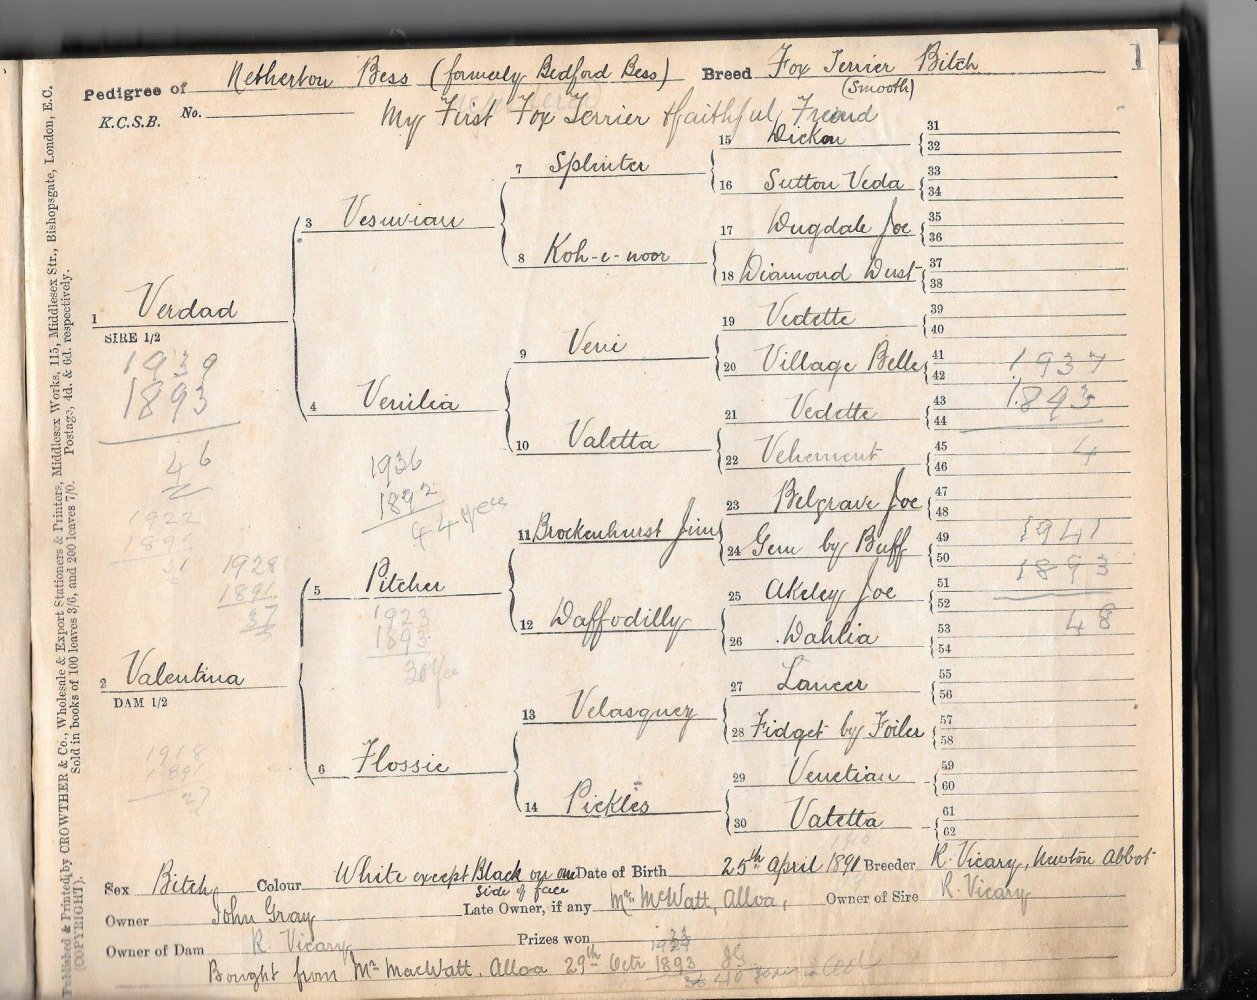 1
Pedigree of Netherton Bess (formerly Bedford Bess) Breed Fox Terrier Bitch
(Smooth)
K.C.S.B. No.
My First Fox Terrier & faithful Friend
1 Verdad
SIRE 1/2
2 Valentina
DAM 1/2
3 Vesuvian
4 Venilia
5 Pitcher
6 Flossie
7 Splinter
8 Koh-i-noor
9 Veni
10 Valetta
11 Brockenhurst Jim
12 Daffodilly
13 Velasquez
14 Pickles
15 Dickon
16 Sutton Veda
17 Dugdale Joe
18 Diamond Dust
19 Vedette
20 Village Belle
21 Vedette
22 Vehement
23 Belgrave Joe
24 Gem by Buff
25 Akeley Joe
26 Dahlia
27 Lancer
28 Fidget by Foiler
29 Venetian
30 Valetta
31
32
33
34
35
36
37
38
39
40
41
42
43
44
45
46
47
48
49
50
51
52
53
54
55
56
57
58
59
60
61
62
1939
1893
46
1922
1891
31
1928
1891
37
1918
1891
27
1936
1892
44 years
1923
1893
30 Yrs
1937
1893
4
1941
1893
48
Sex Bitch Colour White except Black on one side of face Date of Birth 25th April 1891 Breeder R. Vicary, Newton Abbot
Owner John Gray Late Owner, if any Mr. McWatt, Alloa, Owner of Sire R. Vicary
Owner of Dam R. Vicary Prizes won
Bought from Mr MacWatt. Alloa 29th Octr 1893
Published & Printed by CROWTHER & Co., Wholesale & Export Stationers & Printers, Middlesex Works, 115, Middlesex Str., Bishopsgate, London, E.C.
(COPYRIGHT). Sold in books of 100 leaves 3/6, and 200 leaves 7/0. Postage, 4d. & 6d. respectively.